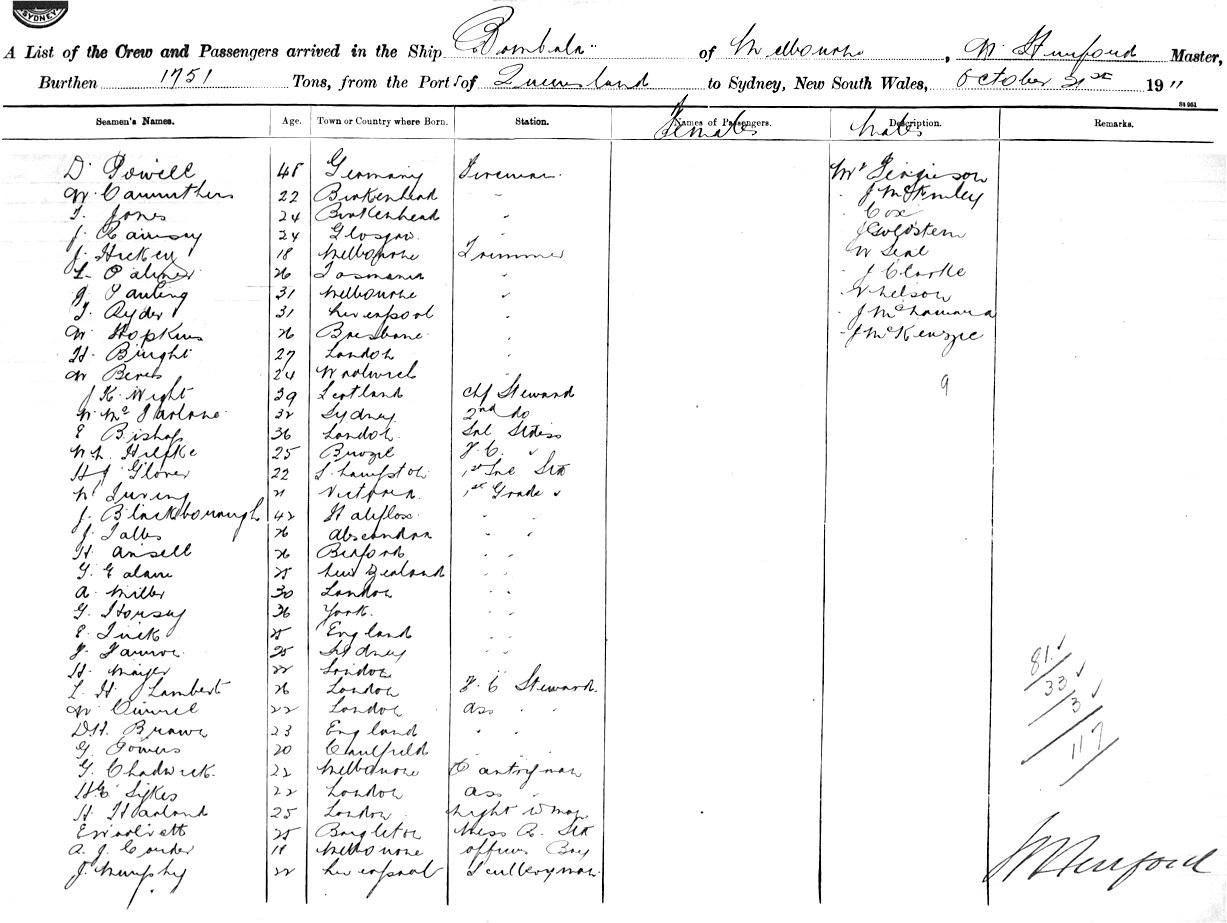 SYDNEY
A List of the Crew and Passengers arrived in the Ship "Bombala" of Melbourne, W. Hurford Master,
Burthen 1751 Tons, from the Port of Queensland to Sydney, New South Wales, October 31st 1911
Seamen's Names. Age. Town or Country where Born. Station. Names of Passengers. Description. Remarks.
Females Males
D. Powell 48 Germany Fireman. Mr Ferguson
W. Carruthers 22 Birkenhead " J McKinley
T. Jones 24 Birkenhead " Cox
J. Ramsay 24 Glasgow " J Goldstein
J. Hickey 18 Melbourne Trimmer W Seal
L. Palmer 26 Tasmania " J Clarke
31 Melbourne " Nelson
T. Ryder 31 Liverpool " J McNamara
W. Hopkins 26 Brisbane " J McKenzie
H. Bright 27 London "
W 24 Woolwich " 9
J. K. Wight 39 Scotland Chf Steward
W. McFarlane 32 Sydney 2nd do
E Bishop 36 London Stdess
25 F. C. "
H J Glover 22 S. hampton 1st Sal Std
W Irving 21 Victoria 1st Grade "
J. Blackborough 42 Halifax " "
J. 26 " "
H. Ansell 26 Bedford " "
G. 25 New Zealand " "
A. Miller 30 London " "
G. Horsey 36 York. " "
E. Tuck 25 England " "
25 Sydney " "
H. 22 London
L. H. Lambert 26 London F. C Steward.
W. 22 London ass " "
D.H. Brown 23 England " "
G Powers 20 Caulfield
G. Chadwick. 22 Melbourne Pantryman
H G Sykes 22 London ass "
H. Harland 25 London Night W man
25 Mess R. Std
A. J. 18 Melbourne Officers Boy
J. Murphy 22 Liverpool Sculleryman
81
33
3
117
W Hurford